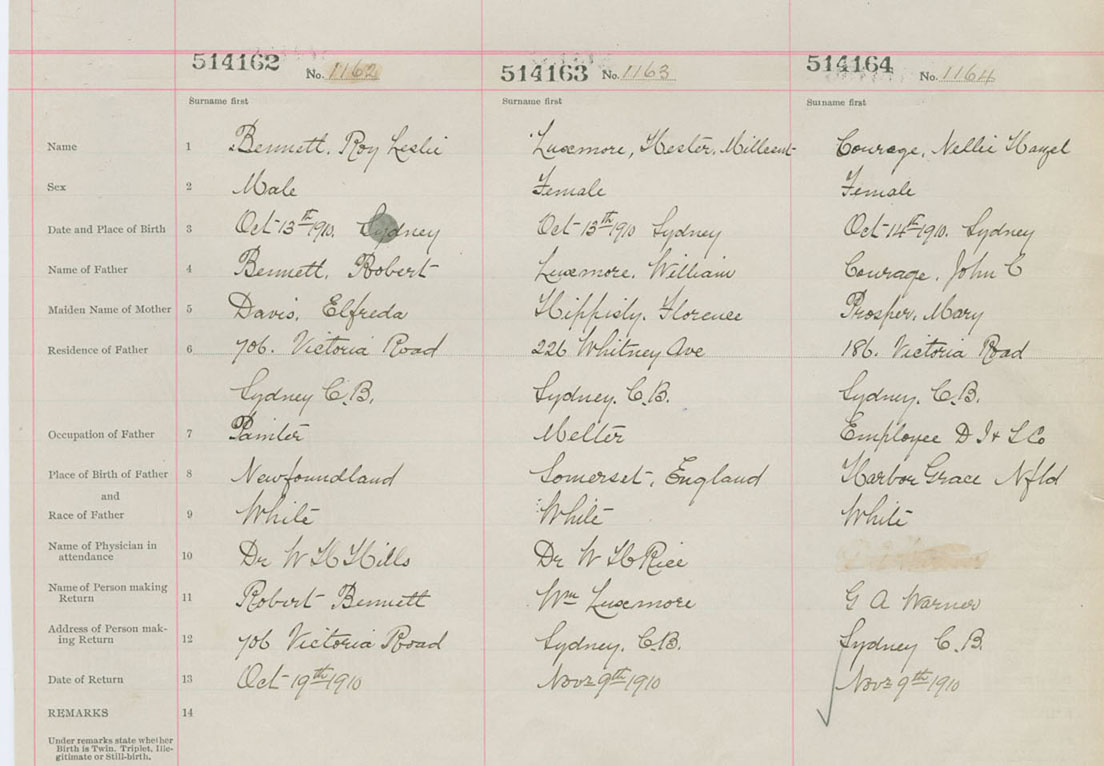 514162 No. 1162 514163 No. 1163 514164 No. 1164
Surname first Surname first Surname first
Name 1 Bennett, Roy Leslie Luxemore, Hester, Millicent Courage, Nellie Hazel
Sex 2 Male Female Female
Date and Place of Birth 3 Oct 13th 1910. Sydney Oct 13th 1910 Sydney Oct 14th 1910. Sydney
Name of Father 4 Bennett, Robert Luxemore, William Courage, John C
Maiden Name of Mother 5 Davis, Elfreda Hippisly, Florence Prosper, Mary
Residence of Father 6 706. Victoria Road 226 Whitney Ave 186. Victoria Road
Sydney C.B. Sydney. C.B. Sydney. C.B.
Occupation of Father 7 Painter Melter Employee D I & S Co
Place of Birth of Father 8 Newfoundland Somerset, England Harbor Grace Nfld
and
Race of Father 9 White White White
Name of Physician in
attendance 10 Dr W H Hills Dr W H Rice
Name of Person making
Return 11 Robert Bennett Wm Luxemore G A Warner
Address of Person mak-
ing Return 12 706 Victoria Road Sydney. C.B. Sydney C.B.
Date of Return 13 Oct 19th 1910 Nov 9th 1910 Nov 9th 1910
REMARKS 14
Under remarks state whether
Birth is Twin, Triplet, Ille-
gitimate or Still-birth.